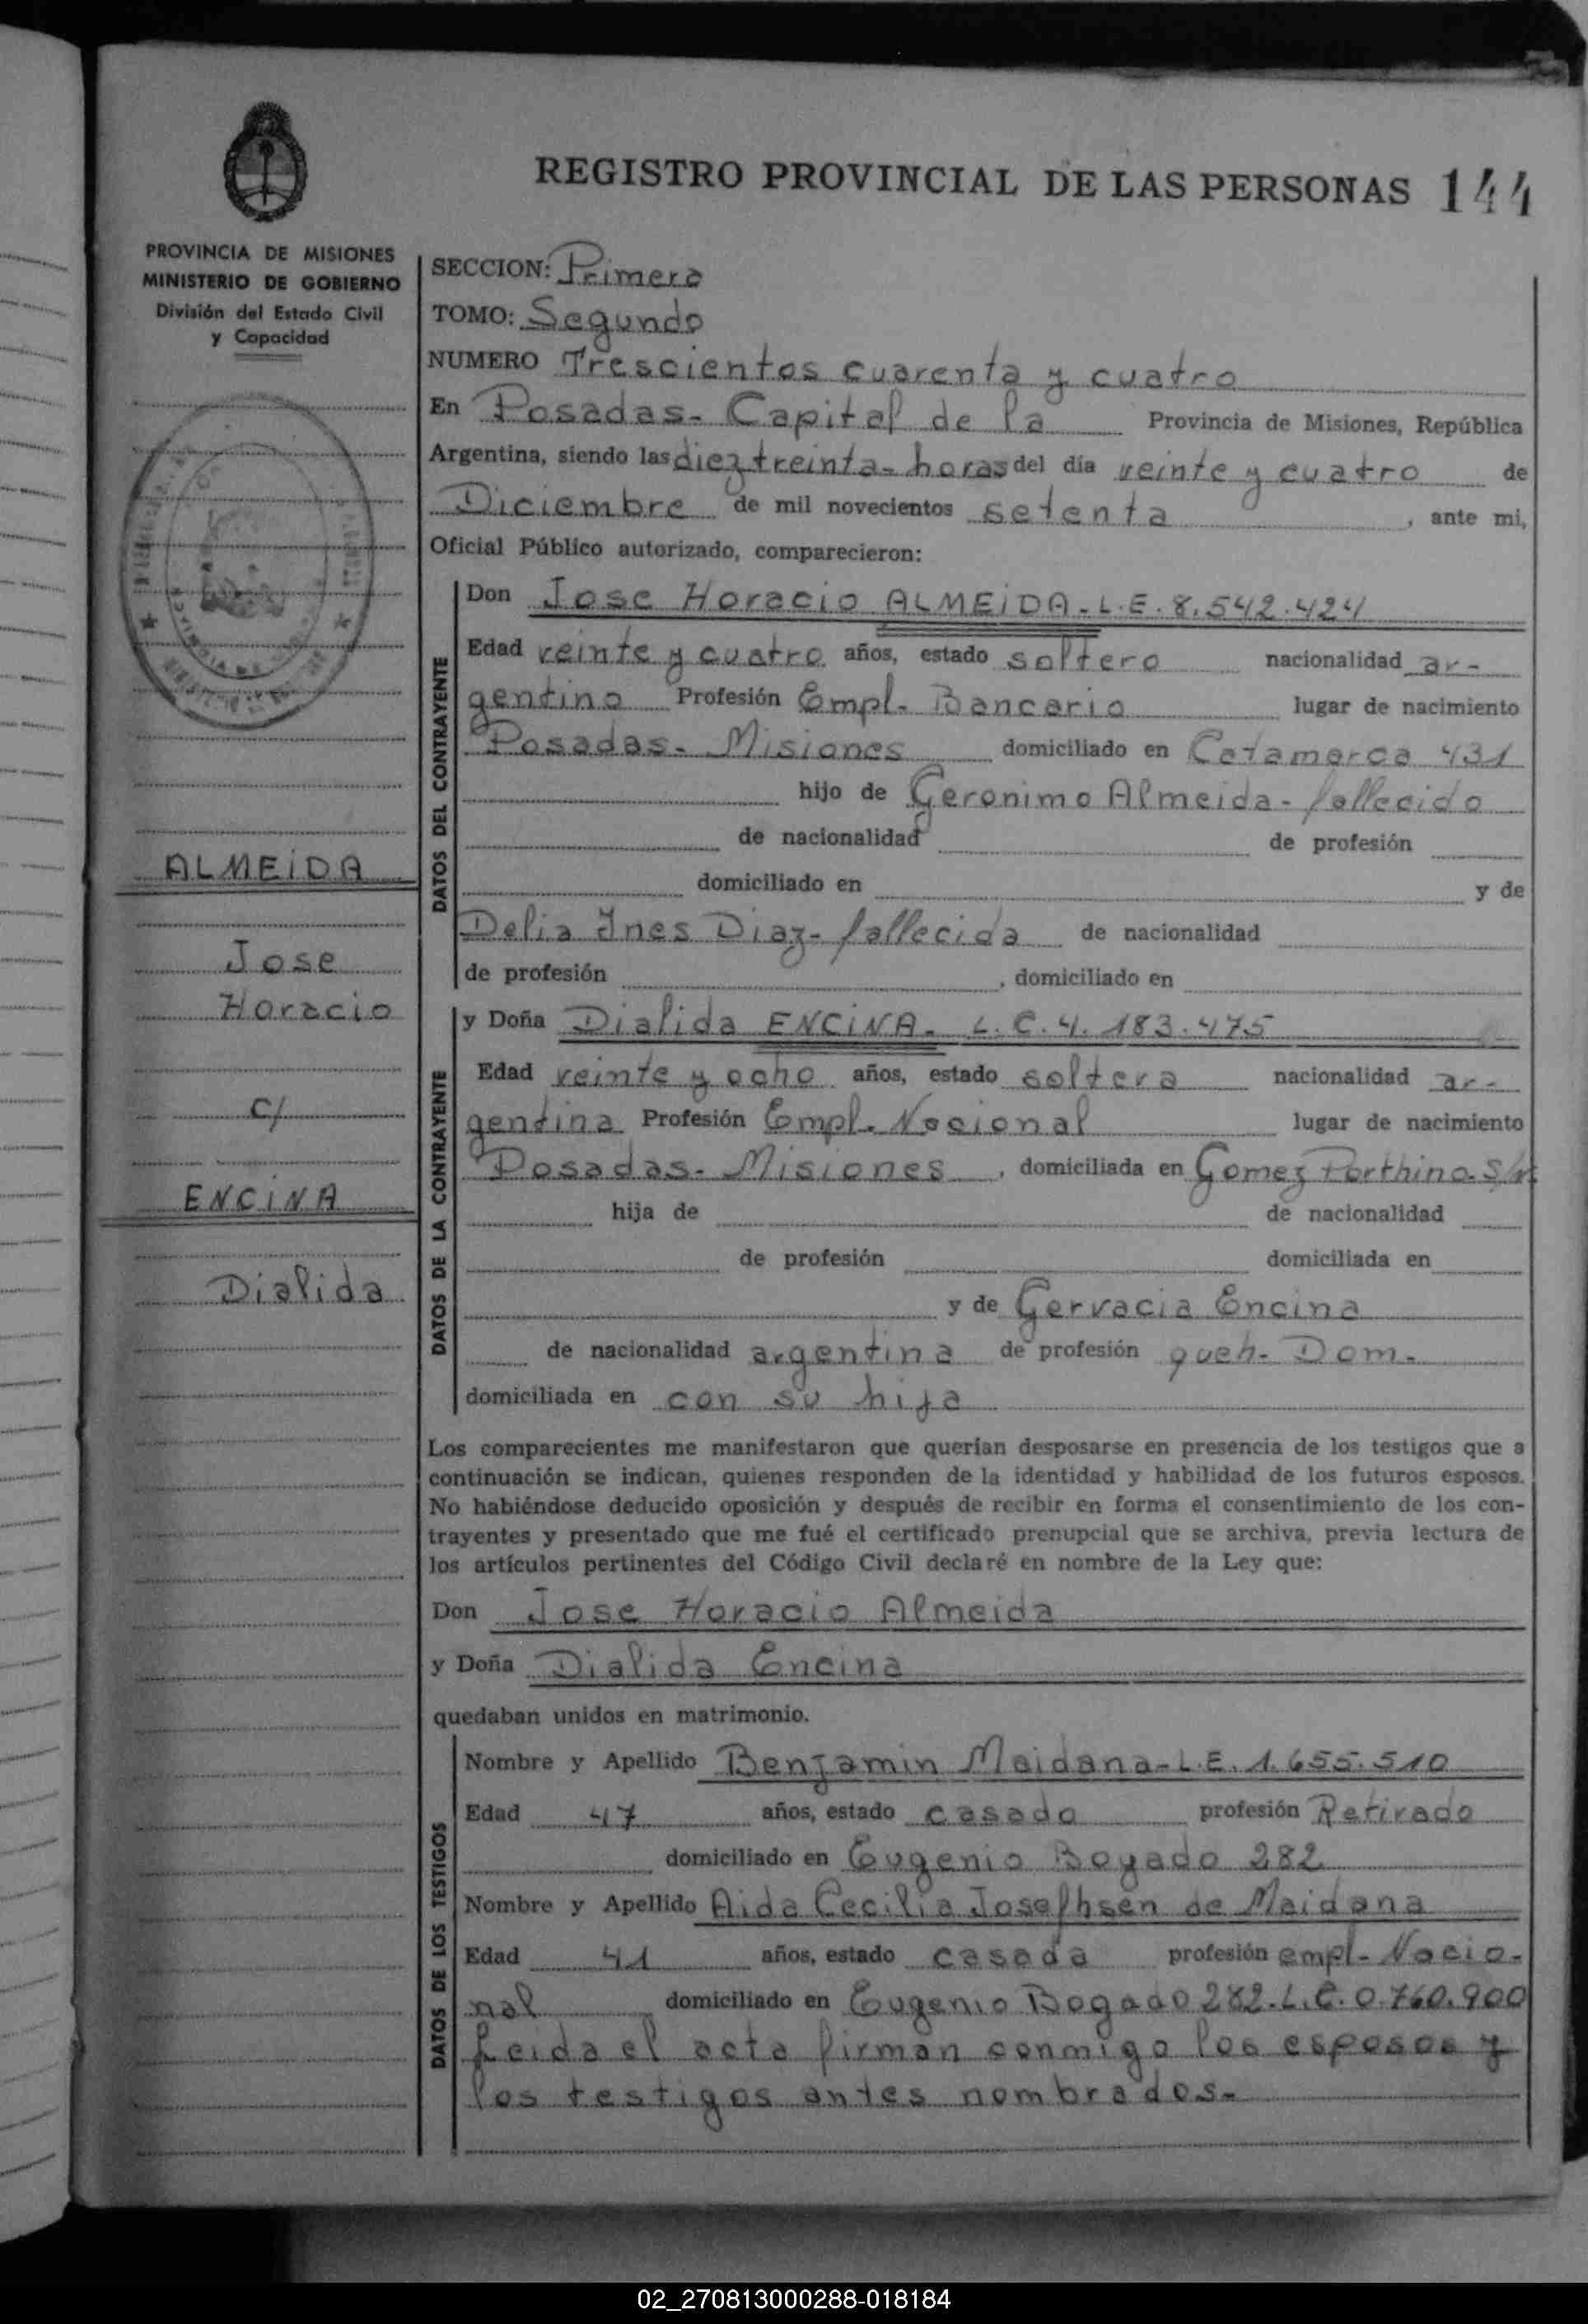 REGISTRO PROVINCIAL DE LAS PERSONAS 144
PROVINCIA DE MISIONES
MINISTERIO DE GOBIERNO
División del Estado Civil
y Capacidad
SECCION: Primera
TOMO: Segundo
NUMERO Trescientos cuarenta y cuatro
En Posadas- Capital de la Provincia de Misiones, República
Argentina, siendo las diez treinta- horas del día veinte y cuatro de
Diciembre de mil novecientos setenta, ante mi,
Oficial Público autorizado, comparecieron:
DATOS DEL CONTRAYENTE
Don Jose Horacio ALMEIDA- L.E. 8.542.424
Edad veinte y cuatro años, estado soltero nacionalidad ar-
gentino Profesión Empl- Bancario lugar de nacimiento
Posadas- Misiones domiciliado en Catamarca 431
hijo de Geronimo Almeida- fallecido
de nacionalidad de profesión
domiciliado en y de
Delia Ines Diaz- fallecida de nacionalidad
de profesión , domiciliado en
DATOS DE LA CONTRAYENTE
y Doña Dialida ENCINA- L.C. 4.183.475
Edad veinte y ocho años, estado soltera nacionalidad ar-
gentina Profesión Empl. Nacional lugar de nacimiento
Posadas- Misiones, domiciliada en Gomez Porthino. S/n
hija de de nacionalidad
de profesión domiciliada en
y de Gervacia Encina
de nacionalidad argentina de profesión queh- Dom-
domiciliada en con su hija
Los comparecientes me manifestaron que querían desposarse en presencia de los testigos que a
continuación se indican, quienes responden de la identidad y habilidad de los futuros esposos.
No habiéndose deducido oposición y después de recibir en forma el consentimiento de los con-
trayentes y presentado que me fué el certificado prenupcial que se archiva, previa lectura de
los artículos pertinentes del Código Civil declaré en nombre de la Ley que:
Don Jose Horacio Almeida
y Doña Dialida Encina
quedaban unidos en matrimonio.
DATOS DE LOS TESTIGOS
Nombre y Apellido Benjamin Maidana- L.E. 1.655.510
Edad 47 años, estado casado profesión Retirado
domiciliado en Eugenio Bogado 282
Nombre y Apellido Aida Cecilia Joselhsen de Maidana
Edad 41 años, estado casada profesión empl- Nacio-
nal domiciliado en Eugenio Bogado 282. L.C. 0.760.900
Leida el acta firman conmigo los esposos y
los testigos antes nombrados-
ALMEIDA
Jose
Horacio
c/
ENCINA
Dialida
02_270813000288-018184